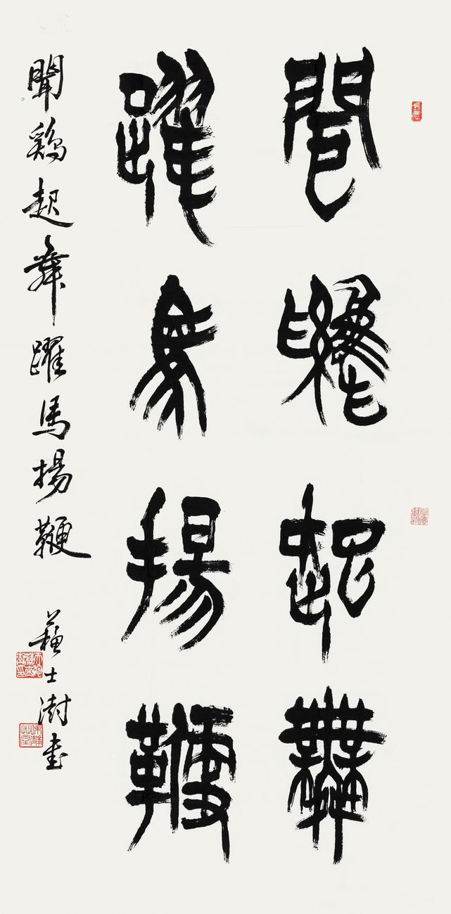 聞雞起舞
躍馬揚鞭
聞鷄起舞躍馬揚鞭 蘇士澍書